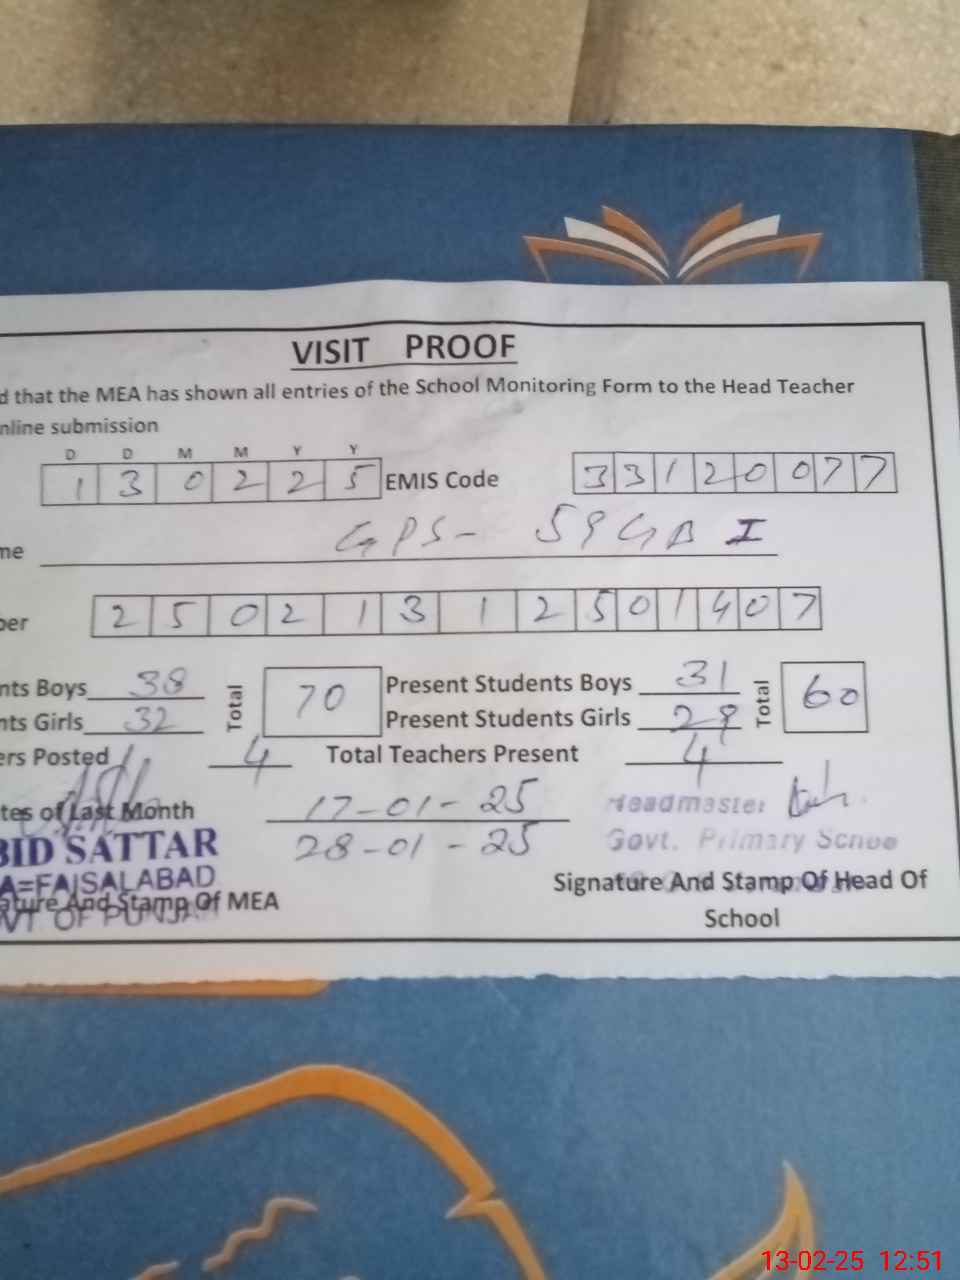 VISIT PROOF
d that the MEA has shown all entries of the School Monitoring Form to the Head Teacher
nline submission
D D M M Y Y
1 3 0 2 2 5 EMIS Code 3 3 1 2 0 0 7 7
me GPS- 59 GB I
ber 2 5 0 2 1 3 1 2 5 0 1 4 0 7
nts Boys 38 Total 70 Present Students Boys 31 Total 60
nts Girls 32 Present Students Girls 29
ers Posted 4 Total Teachers Present 4
tes of Last Month 17-01-25
28-01-25
Headmaster
Govt. Primary Schoo
BID SATTAR
A=FAISALABAD
ature And Stamp Of MEA
VT OF PUNJA
Signature And Stamp Of Head Of
School
13-02-25 12:51